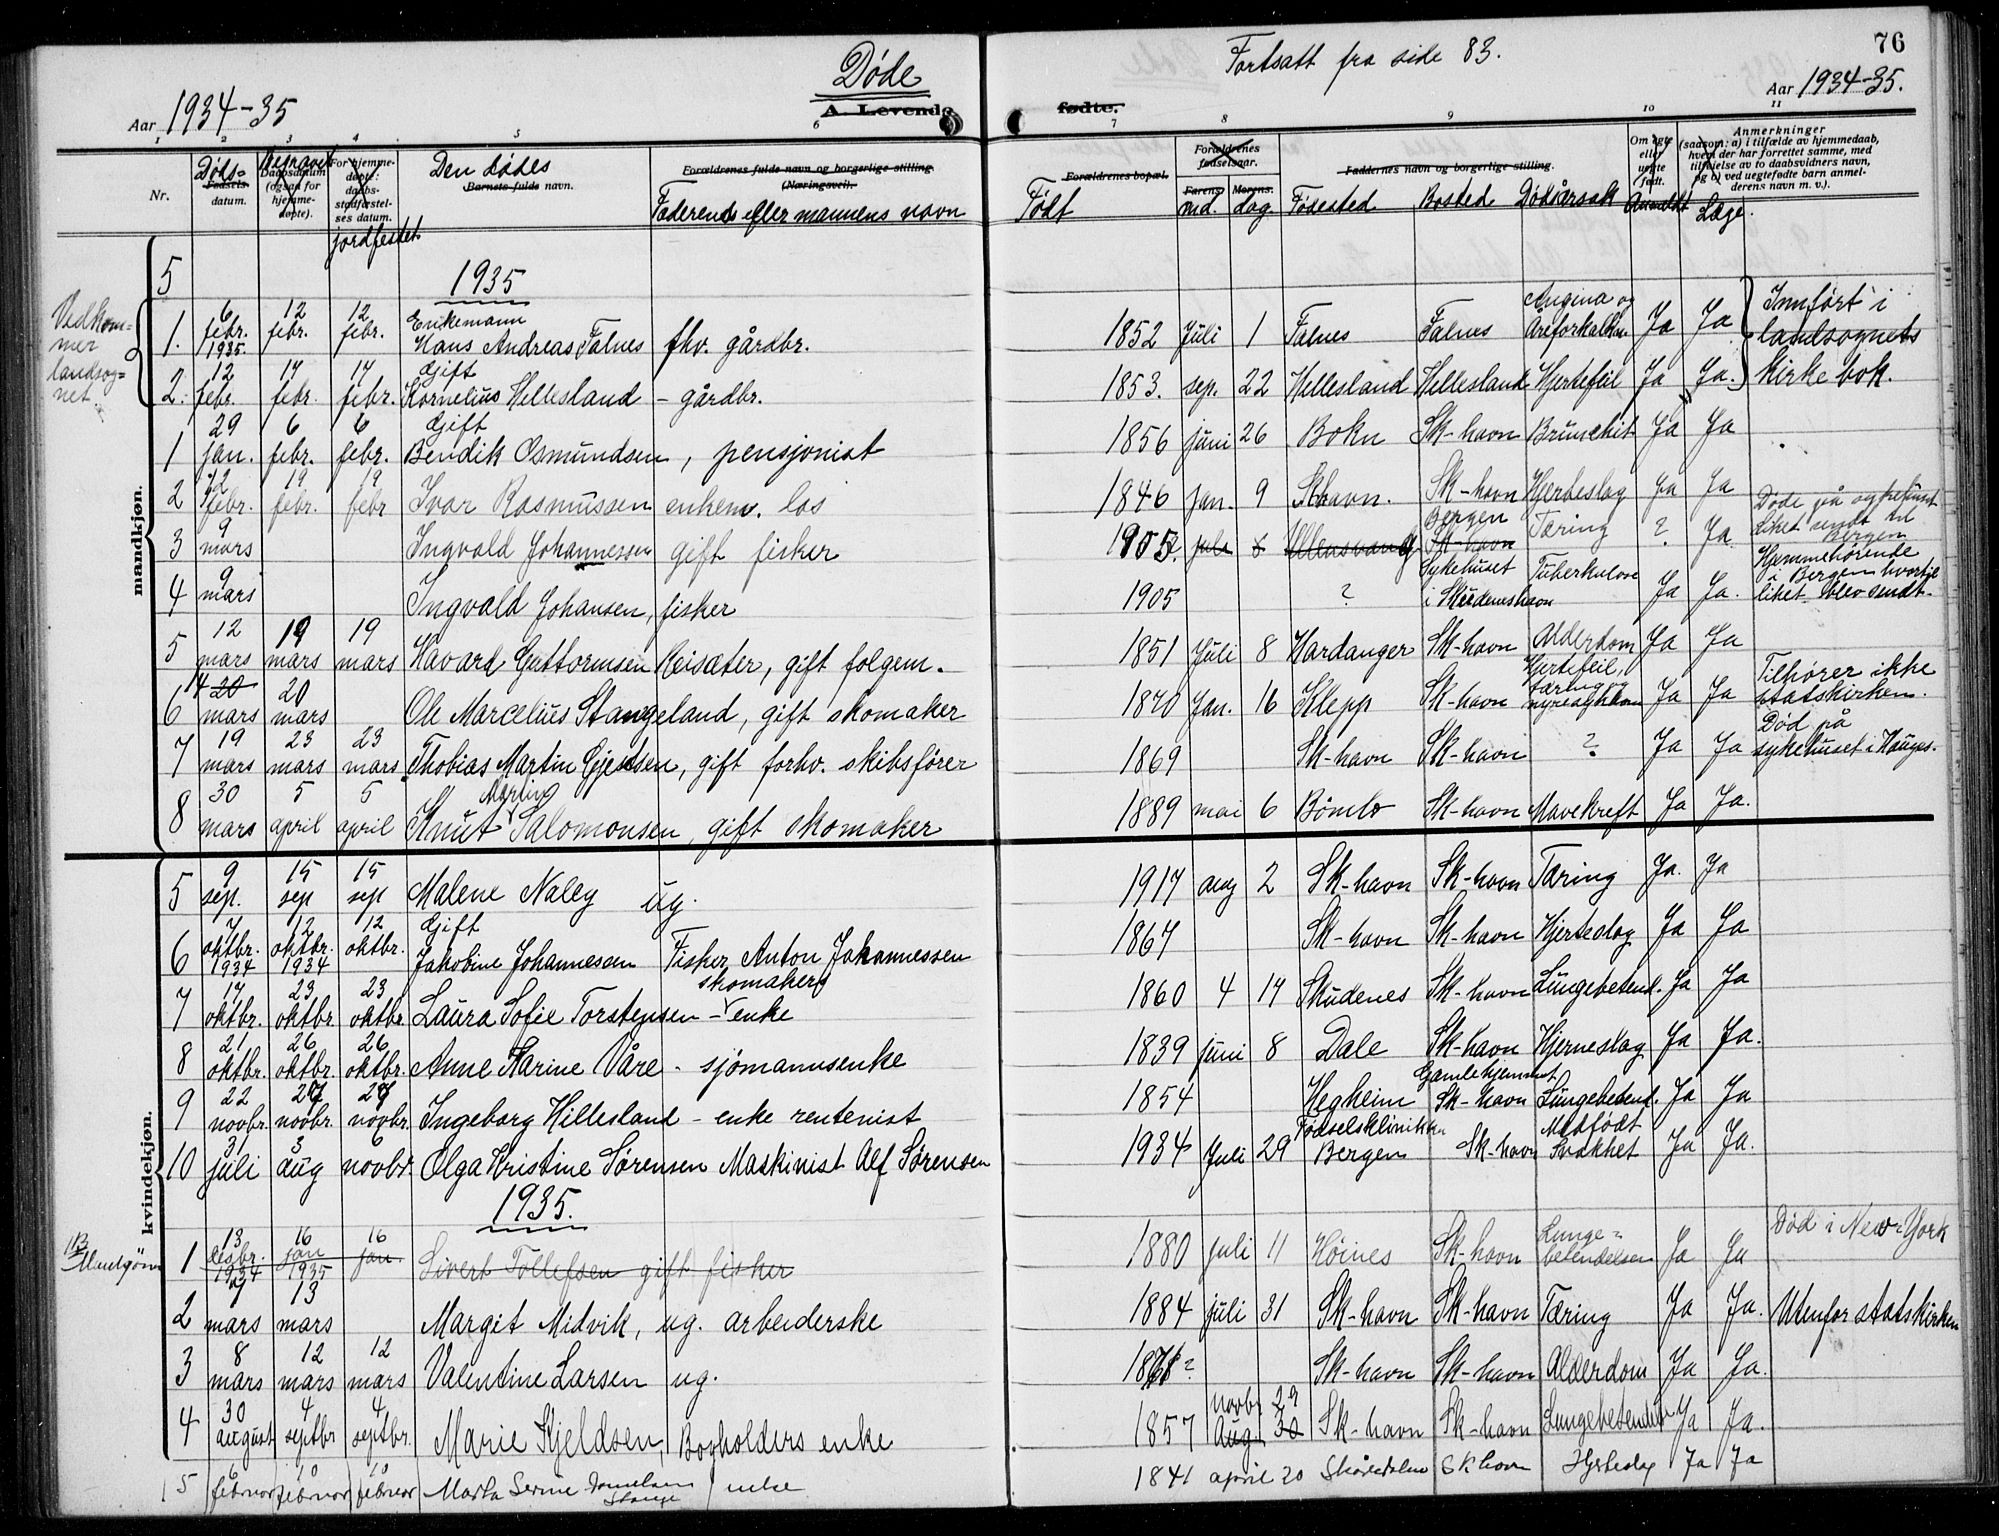 Døde
Fortsatt fra side 83.
76
Aar 1934-35
A. Levende
fødte.
Aar 1934-35.
1 2 3 4 5 6 7 8 9 10 11
Nr.
Døds-
Fødsels-
datum.
Begravet
Daabsdatum
(ogsaa for
hjemme-
døpte).
For hjemme-
døpte:
daabs-
stadfæstel-
ses datum.
jordfestet
Den dødes
Barnets fulde navn.
Forældrenes fulde navn og borgerlige stilling
(Næringsvei).
Faderens eller mannens navn
Forældrenes bopæl.
Født
Forældrenes
fødselsaar.
Farens. Morens.
md. dag
Faddernes navn og borgerlige stilling.
Fødested Bosted Dødsårsak
Om egte
eller
uegte
født.
Anmeldt
Anmerkninger
(saasom: a) i tilfælde av hjemmedaab,
hvem der har forrettet samme, med
tilføielse av to daabsvidners navn,
og b) ved uegtefødte barn anmel-
derens navn m. v.).
Læge.
mandkjøn.
5 1935
Vedkom-
mer
landsog-
net
1. 6 febr. 1935. 12 febr. 12 febr. Enkemann Hans Andreas Falnes fhv. gårdbr. 1852 Juli 1 Falnes Falnes Angina og Åreforkalkn Ja Ja
2. 12 febr. 17 febr. 17 febr. Gift Kornelius Hellesland - gårdbr. 1853. sep. 22 Hellesland Hellesland Hjertefeil Ja Ja.
Innført i
landsognets
kirkebok.
1 29 jan. 6 febr. 6 febr. Gift Bendik Osmundsen, pensjonist 1856 juni 26 Bokn Sk-havn Brunchit Ja Ja
2 12 febr. 19 febr. 19 febr Ivar Rasmussen enkem. los 1846 jan. 9 Skhavn. Sk-havn Hjerteslag Ja Ja
3 9 mars Ingvald Johannessen gift fisker 1905 jule 8 Ullensvang Bergen Sk-havn Tæring ? Ja Døde på sykehuset liket sendt til Bergen
4 9 mars Ingvald Johansen, fisker 1905 ? Sykehuset i Skudeneshavn Tuberkulose Ja Ja. Hjemmehørende i Bergen hvortil liket blev sendt.
5 12 mars 19 mars 19 mars Havard Guttormsen Reisæter, gift folgem. 1851 Juli 8 Hardanger Sk-havn Alderdom Ja Ja
6 14 20 mars 20 mars Ole Marcelius Stangeland, gift skomaker 1870 Jan. 16 Klepp Sk-havn Hjertefeil, tæring og nyresykdom Ja Ja Tilhører ikke statskirken.
7 19 mars 23 mars 23 mars Thobias Martin Gjertsen, gift forhv. skibsfører 1869 Sk-havn Sk-havn ? Ja Ja Død på sykehuset i Hauges.
8 30 mars 5 april 5 april Knut Martin Salomonsen, gift skomaker 1889 mai 6 Bømlo Sk-havn Mavekreft Ja Ja.
kvindekjøn.
5 9 sep. 15 sep 15 sep Malene Naley ug. 1917 aug 2 Sk-havn Sk-havn Tæring Ja. Ja
6 7 oktbr. 1934 12 oktbr. 1934 12 oktbr. Gift Jakobine Johannessen Fisker Anton Johannessen 1867 Sk-havn Sk-havn Hjerteslag Ja Ja
7 17 oktbr. 23 oktbr 23 oktbr Laura Sofie Torstensen - skomaker enke 1860 4 14 Skudenes Sk-havn Lungebetend. Ja Ja
8 21 oktbr. 26 oktbr. 26 oktbr. Anne Karine Våre - sjømannsenke 1839 juni 8 Dale Sk-havn Hjerneslag Ja Ja.
9 22 novbr. 27 novbr. 27 novbr. Ingeborg Hillesland - enke rentenist 1854 Hegheim Gamlehjemmet Sk-havn Lungebetend. Ja Ja
10 31 juli 3 aug 6 novbr. Olga Kristine Sørensen Maskinist Alf Sørensen 1934 Juli 29 Fødselsklinikken Bergen Sk-havn Medfødt Svakhet Ja Ja.
1935.
NB Mandkjøn
1 13 desbr. 1934 16 jan 1935 16 jan Sivert Tollefsen gift fisker 1880 juli 11 Høines Sk-havn Lunge-betendelsen Ja Ja Død i New-York
2 7 mars 13 mars Margit Midvik, ug. arbeiderske 1884 juli 31 Sk-havn Sk-havn Tæring Ja Ja. Utenfor statskirken
3 8 mars 12 mars 12 mars Valentine Larsen ug. 1868? Sk-havn Sk-havn Alderdom Ja Ja.
4 30 august 4 septbr 4 septbr. Marie Kjeldsen, Bogholders enke 1857 novbr 29 Aug. 30 Sk-havn Sk-havn Lungebetendels Ja Ja.
5 6 februar 10 februar 10 februar Marta Serine Danielsen Stange enke 1841 april 20 Skåredalen Skhavn Hjerteslag Ja Ja